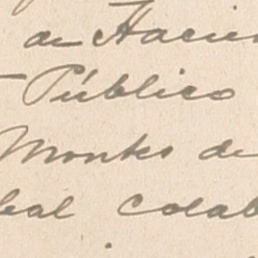 de Hacien
Público
Montes de
bal colab